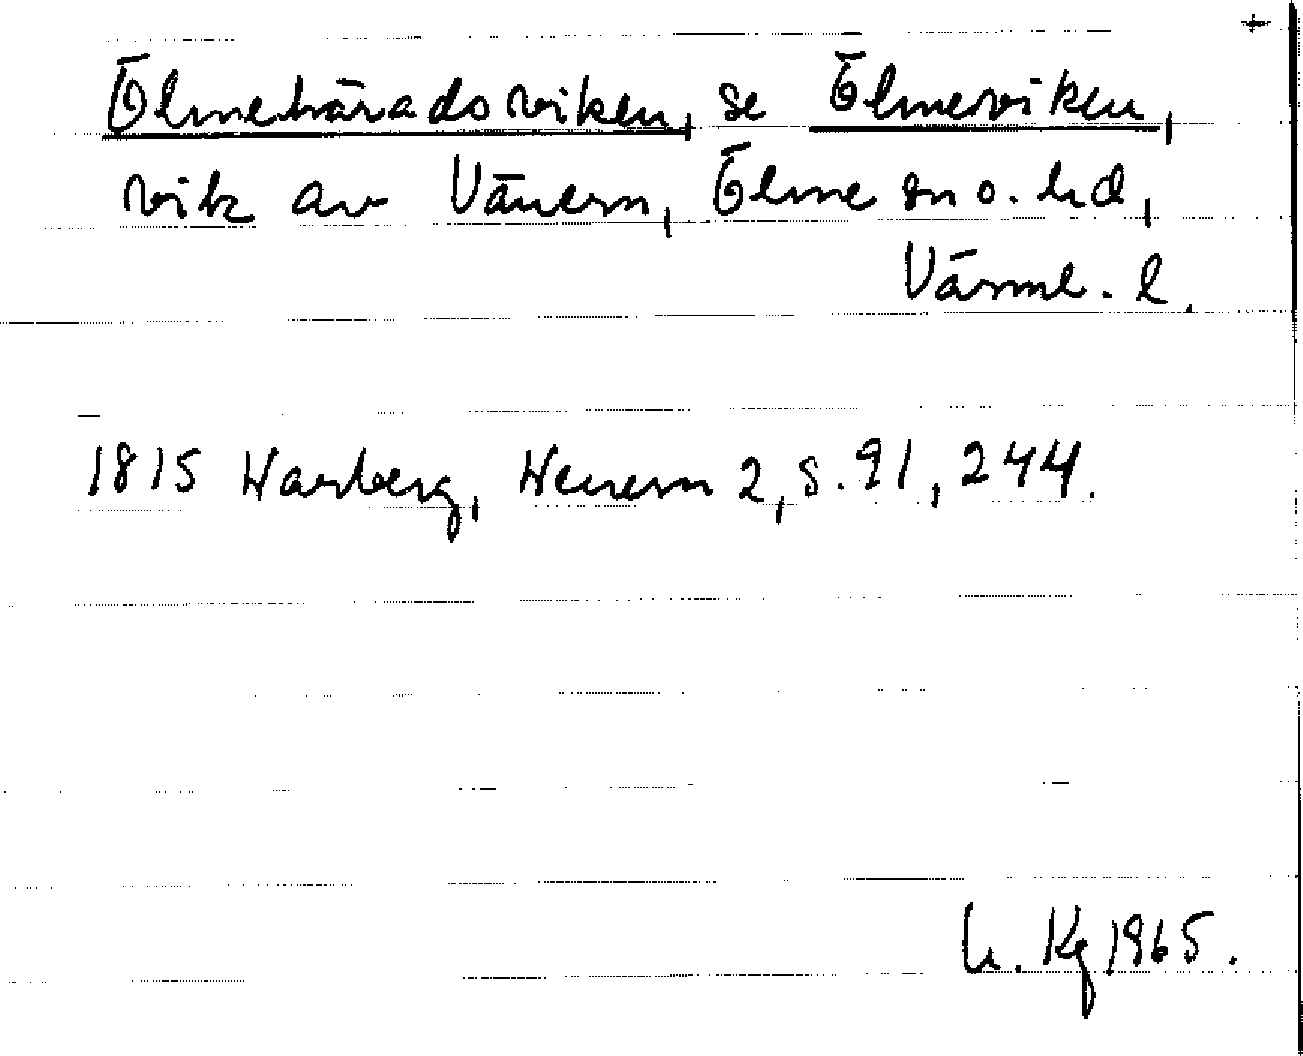 Ölmehäradsviken, se Ölmeviken,
vik av Vänern, Ölme sn o. hd,
Värml. l.
1815 Warberg, Wenern 2, s. 91, 244.
Kg 1965.